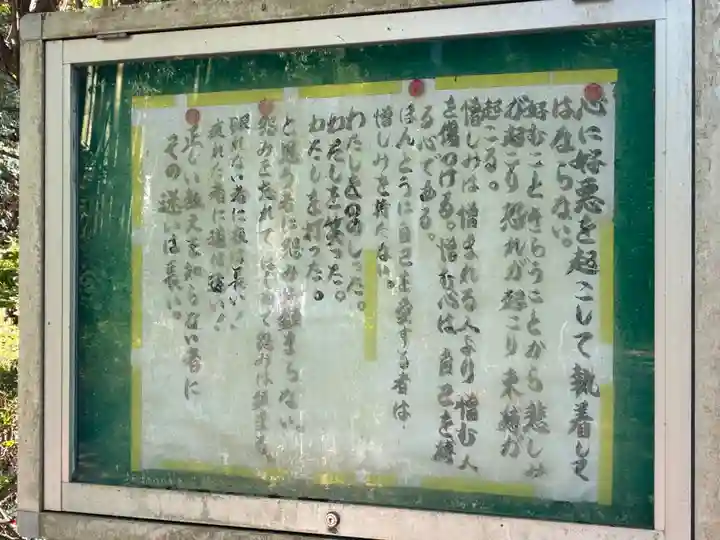 心に好悪を起こして執着して
はならない。
好むこときらうことから悲しみ
が起こり恐れが起こり束縛が
起こる。
憎しみは憎まれる人より憎む人
を傷つける。憎む心は自己を嫌
る心である。
ほんとうに自己を愛する者は
憎しみを持たない。
わたしをののしった。
わたしを笑った。
わたしを打った。
と思う者に怨みは鎮まらない。
怨みを忘れて
怨みは鎮まる。
眠れない者に夜は長い。
疲れた者に道は遠い。
正しい教えを知らない者に
その迷いは長い。